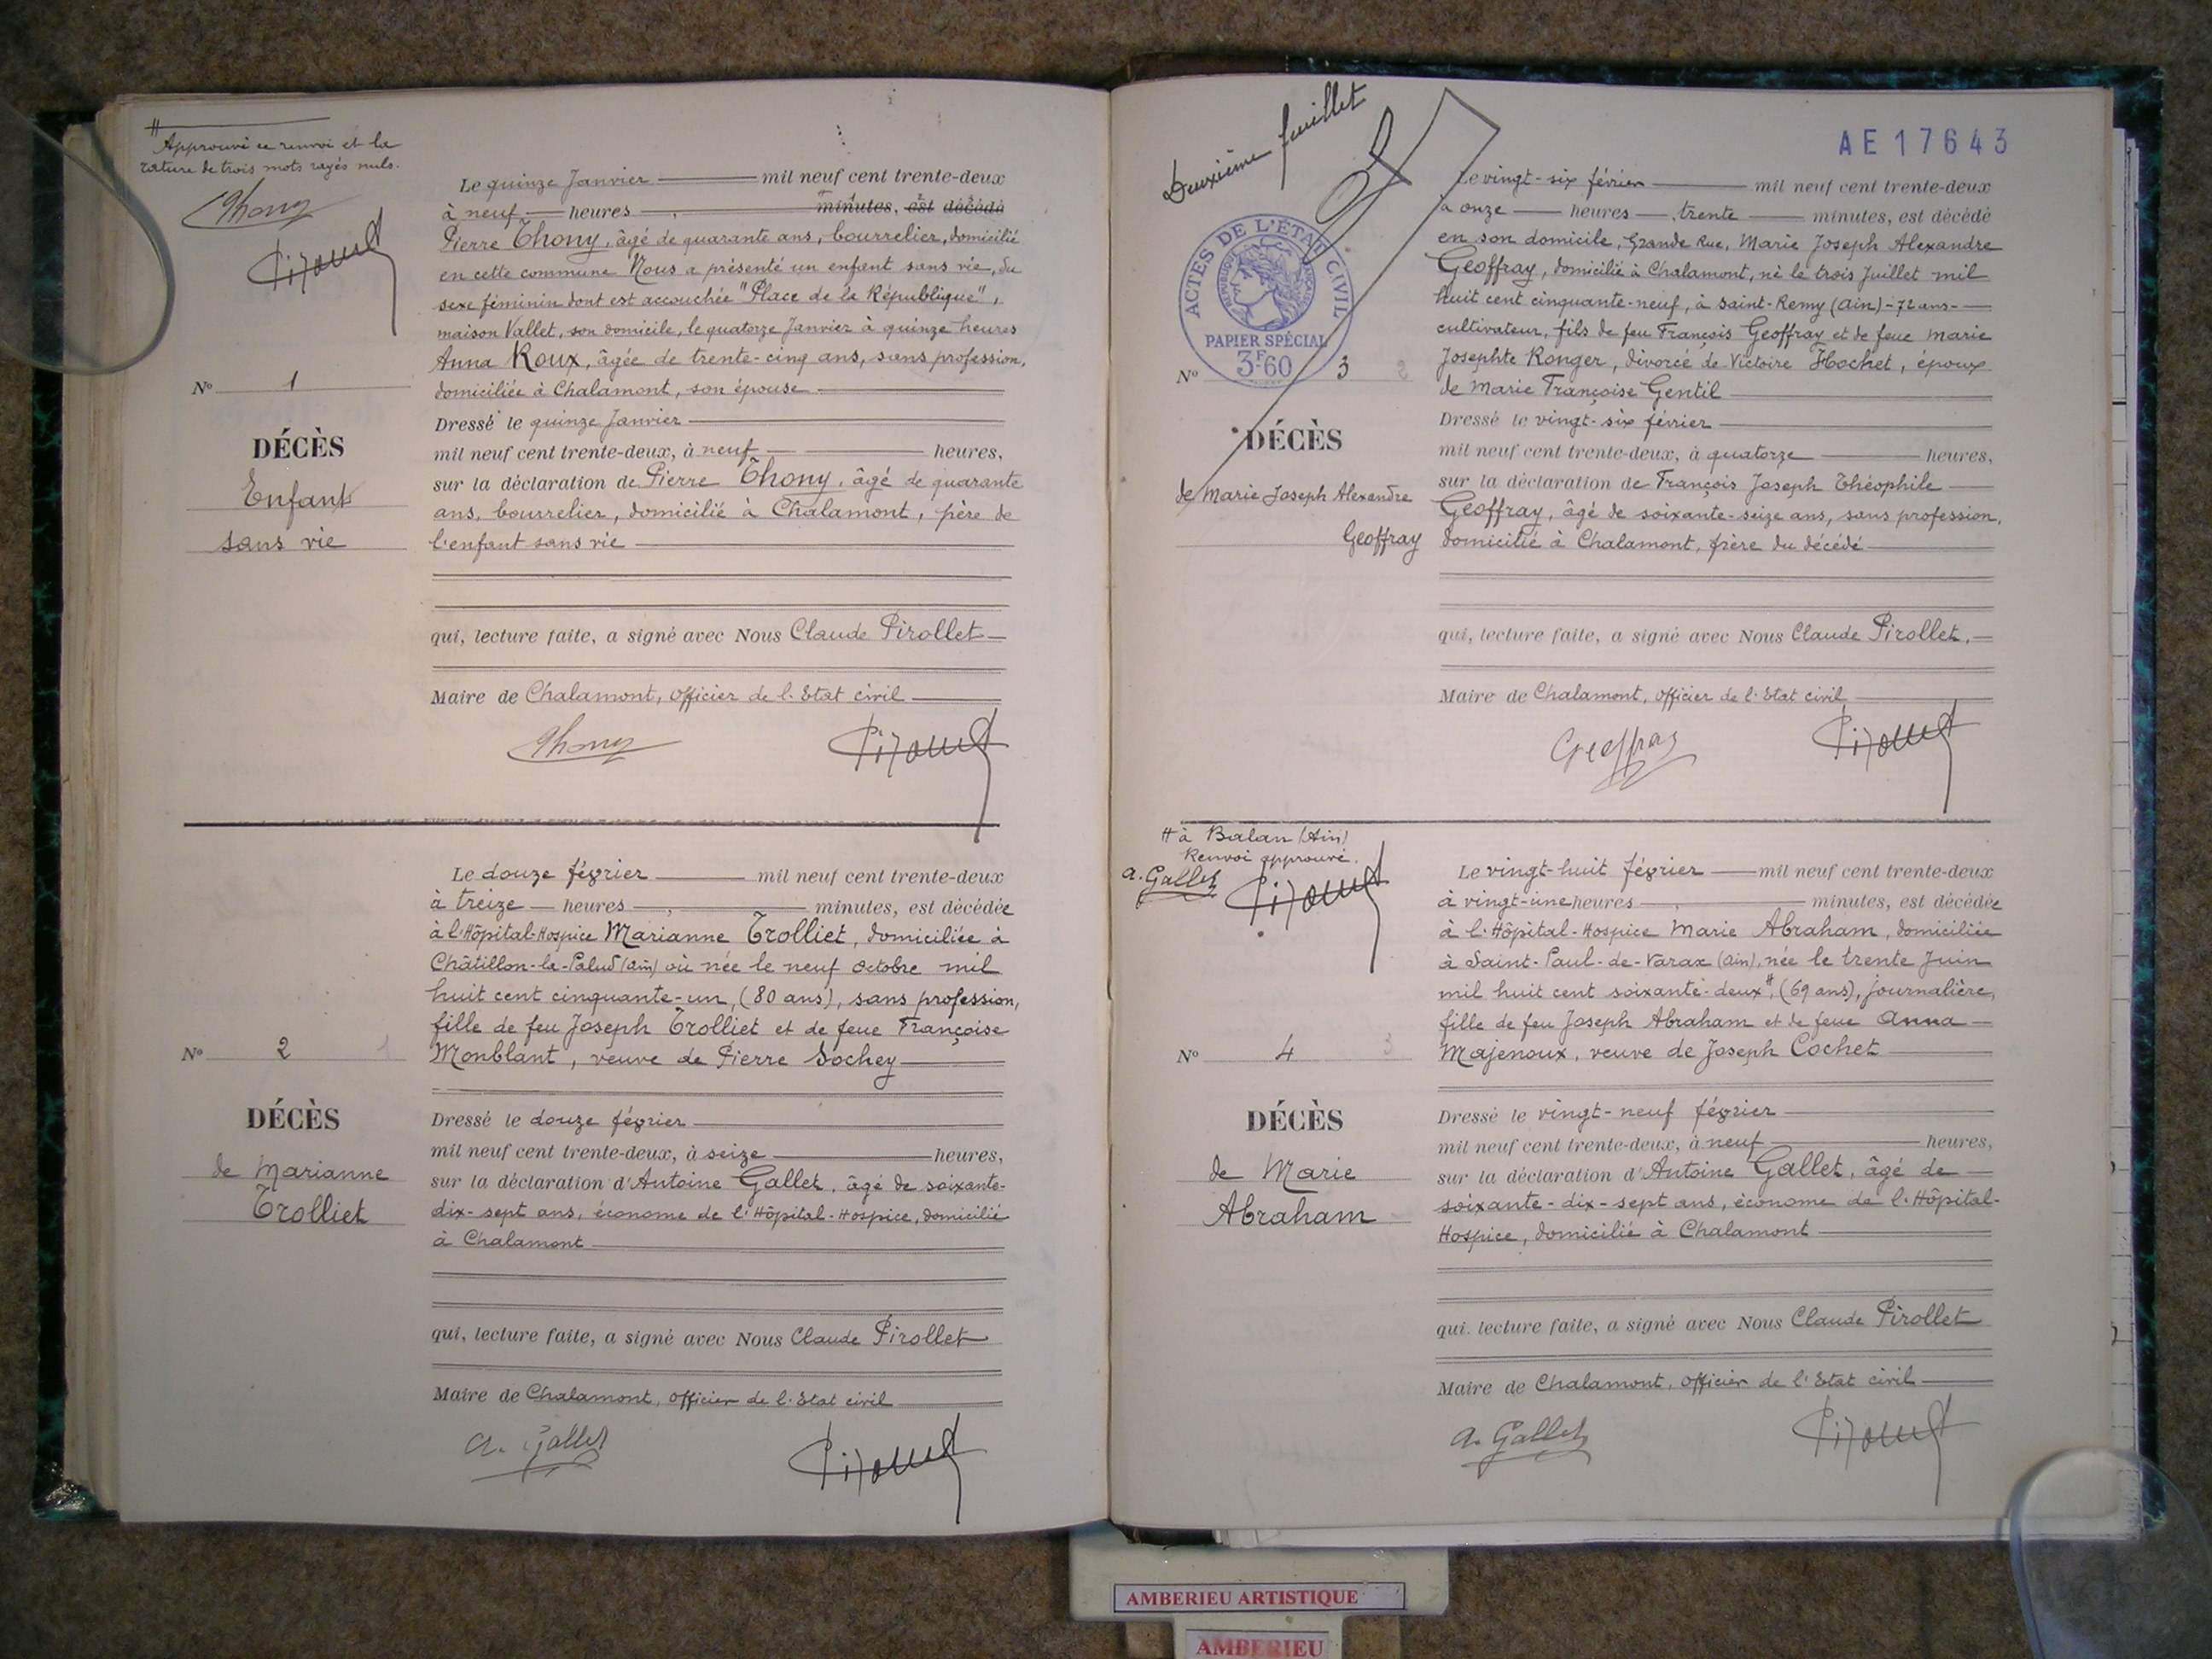 # Approuvé ce renvoi et la
rature de trois mots rayés nuls.
Thony
Pirollet
Le quinze Janvier mil neuf cent trente-deux
à neuf heures , minutes, est décédé
Pierre Thony, âgé de quarante ans, bourrelier, domicilié
en cette commune Nous a présenté un enfant sans vie, du
sexe féminin dont est accouchée "Place de la République",
maison Vallet, son domicile, le quatorze Janvier à quinze heures
Anna Roux, âgée de trente-cinq ans, sans profession,
domiciliée à Chalamont, son épouse
N° 1
DÉCÈS
Enfant
sans vie
Dressé le quinze Janvier
mil neuf cent trente-deux, à neuf heures,
sur la déclaration de Pierre Thony, âgé de quarante
ans, bourrelier, domicilié à Chalamont, père de
l'enfant sans vie
qui, lecture faite, a signé avec Nous Claude Pirollet
Maire de Chalamont, officier de l'Etat civil
Thony Pirollet
Le douze février mil neuf cent trente-deux
à treize heures , minutes, est décédée
à l'Hôpital-Hospice Marianne Trolliet, domiciliée à
Châtillon-la-Palud (Ain) où née le neuf octobre mil
huit cent cinquante-un, (80 ans), sans profession,
fille de feu Joseph Trolliet et de feue Françoise
Monblant, veuve de Pierre Sochey
N° 2 1
DÉCÈS
de Marianne
Trolliet
Dressé le douze février
mil neuf cent trente-deux, à seize heures,
sur la déclaration d'Antoine Gallet, âgé de soixante-
dix-sept ans, économe de l'Hôpital-Hospice, domicilié
à Chalamont
qui, lecture faite, a signé avec Nous Claude Pirollet
Maire de Chalamont, officier de l'Etat civil
a. Gallet Pirollet
Deuxième feuillet
AE17643
ACTES DE L'ÉTAT CIVIL
RÉPUBLIQUE FRANÇAISE
PAPIER SPÉCIAL
3F60
Le vingt-six février mil neuf cent trente-deux
à onze heures trente minutes, est décédé
en son domicile, Grande Rue, Marie Joseph Alexandre
Geoffray, domicilié à Chalamont, né le trois Juillet mil
huit cent cinquante-neuf, à Saint-Remy (Ain) -72 ans-
cultivateur, fils de feu François Geoffray et de feue Marie
Josephte Ronger, divorcé de Victoire Hochet, époux
de Marie Françoise Gentil
N° 3 2
DÉCÈS
de Marie Joseph Alexandre
Geoffray
Dressé le vingt-six février
mil neuf cent trente-deux, à quatorze heures,
sur la déclaration de François Joseph Théophile
Geoffray, âgé de soixante-seize ans, sans profession,
domicilié à Chalamont, frère du décédé
qui, lecture faite, a signé avec Nous Claude Pirollet,
Maire de Chalamont, officier de l'Etat civil
Geoffray Pirollet
# à Balan (Ain)
Renvoi approuvé.
a. Gallet Pirollet
Le vingt-huit février mil neuf cent trente-deux
à vingt-une heures , minutes, est décédée
à l'Hôpital-Hospice Marie Abraham, domiciliée
à Saint-Paul-de-Varax (Ain), née le trente Juin
mil huit cent soixante-deux #, (69 ans), journalière,
fille de feu Joseph Abraham et de feue Anna
Majenoux, veuve de Joseph Cochet
N° 4 3
DÉCÈS
de Marie
Abraham
Dressé le vingt-neuf février
mil neuf cent trente-deux, à neuf heures,
sur la déclaration d'Antoine Gallet, âgé de
soixante-dix-sept ans, économe de l'Hôpital-
Hospice, domicilié à Chalamont
qui, lecture faite, a signé avec Nous Claude Pirollet
Maire de Chalamont, officier de l'Etat civil
a. Gallet Pirollet
AMBERIEU ARTISTIQUE
AMBERIEU